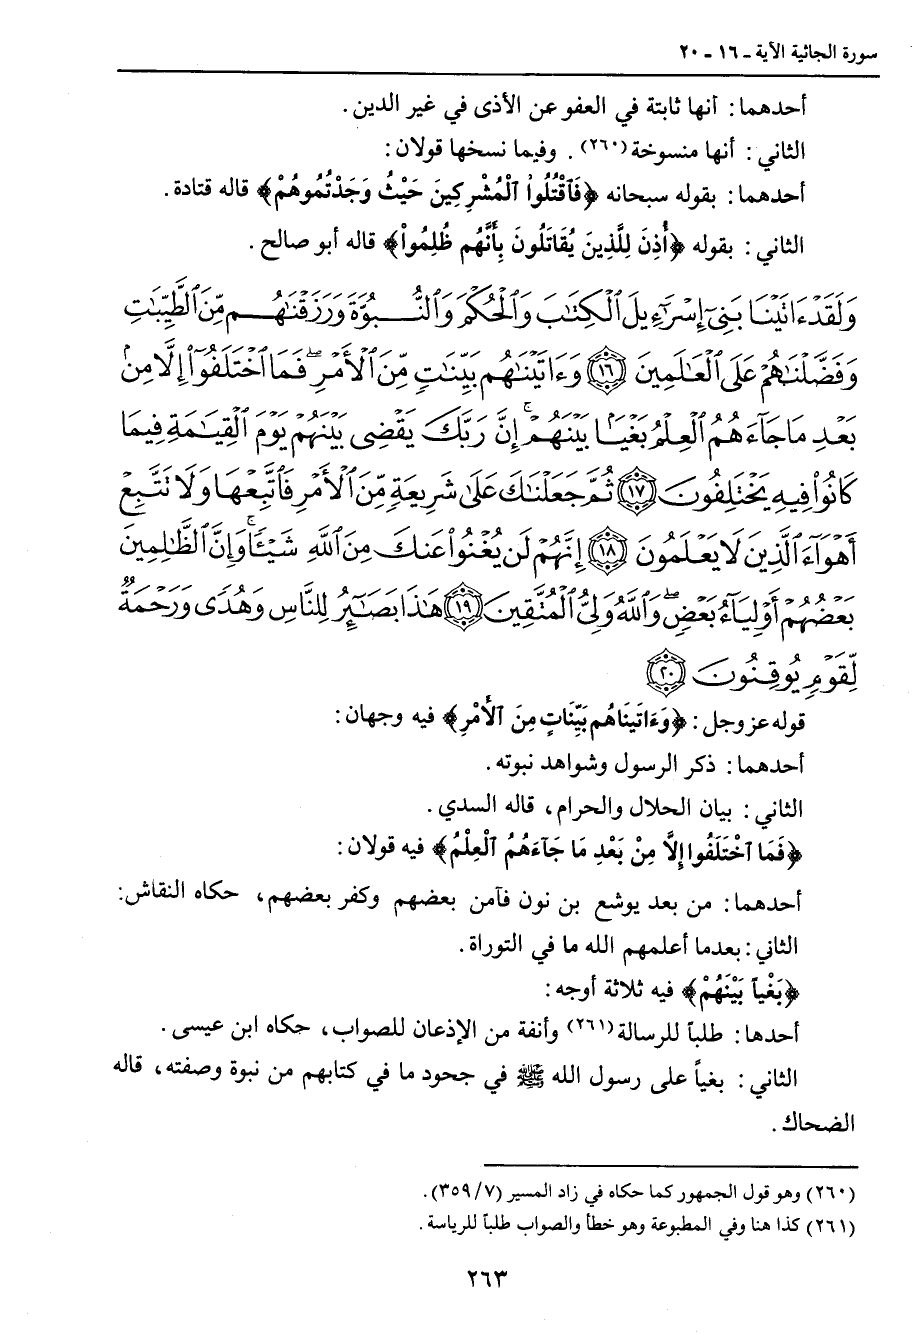 سورة الجاثية الآية ـ ١٦ ـ ٢٠
أحدهما: أنها ثابتة في العفو عن الأذى في غير الدين.
الثاني: أنها منسوخة (٢٦٠). وفيما نسخها قولان:
أحدهما: بقوله سبحانه ﴿فَٱقْتُلُواْ ٱلْمُشْرِكِينَ حَيْثُ وَجَدْتُمُوهُمْ﴾ قاله قتادة.
الثاني: بقوله ﴿أُذِنَ لِلَّذِينَ يُقَاتَلُونَ بِأَنَّهُم ظُلِمُواْ﴾ قاله أبو صالح.
وَلَقَدْ ءَاتَيْنَا بَنِىٓ إِسْرَٰٓءِيلَ ٱلْكِتَٰبَ وَٱلْحُكْمَ وَٱلنُّبُوَّةَ وَرَزَقْنَٰهُم مِّنَ ٱلطَّيِّبَٰتِ
وَفَضَّلْنَٰهُمْ عَلَى ٱلْعَٰلَمِينَ ١٦ وَءَاتَيْنَٰهُم بَيِّنَٰتٍ مِّنَ ٱلْأَمْرِ ۖ فَمَا ٱخْتَلَفُوٓاْ إِلَّا مِنۢ
بَعْدِ مَا جَآءَهُمُ ٱلْعِلْمُ بَغْيًۢا بَيْنَهُمْ ۚ إِنَّ رَبَّكَ يَقْضِى بَيْنَهُمْ يَوْمَ ٱلْقِيَٰمَةِ فِيمَا
كَانُواْ فِيهِ يَخْتَلِفُونَ ١٧ ثُمَّ جَعَلْنَٰكَ عَلَىٰ شَرِيعَةٍ مِّنَ ٱلْأَمْرِ فَٱتَّبِعْهَا وَلَا تَتَّبِعْ
أَهْوَآءَ ٱلَّذِينَ لَا يَعْلَمُونَ ١٨ إِنَّهُمْ لَن يُغْنُواْ عَنكَ مِنَ ٱللَّهِ شَيْـًٔا ۚ وَإِنَّ ٱلظَّٰلِمِينَ
بَعْضُهُمْ أَوْلِيَآءُ بَعْضٍ ۖ وَٱللَّهُ وَلِىُّ ٱلْمُتَّقِينَ ١٩ هَٰذَا بَصَٰٓئِرُ لِلنَّاسِ وَهُدًى وَرَحْمَةٌ
لِّقَوْمٍ يُوقِنُونَ ٢٠
قوله عز وجل: ﴿وَءَاتَيْنَاهُم بَيِّنَاتٍ مِنَ ٱلْأَمْرِ﴾ فيه وجهان:
أحدهما: ذكر الرسول وشواهد نبوته.
الثاني: بيان الحلال والحرام، قاله السدي.
﴿فَمَا ٱخْتَلَفُوا إِلَّا مِنْ بَعْدِ مَا جَآءَهُمُ ٱلْعِلْمُ﴾ فيه قولان:
أحدهما: من بعد يوشع بن نون فآمن بعضهم وكفر بعضهم، حكاه النقاش:
الثاني: بعدما أعلمهم الله ما في التوراة.
﴿بَغْياً بَيْنَهُمْ﴾ فيه ثلاثة أوجه:
أحدها: طلباً للرسالة (٢٦١) وأنفة من الإذعان للصواب، حكاه ابن عيسى.
الثاني: بغياً على رسول الله ﷺ في جحود ما في كتابهم من نبوة وصفته، قاله
الضحاك.
(٢٦٠) وهو قول الجمهور كما حكاه في زاد المسير (٧/ ٣٥٩).
(٢٦١) كذا هنا وفي المطبوعة وهو خطأ والصواب طلباً للرياسة.
٢٦٣